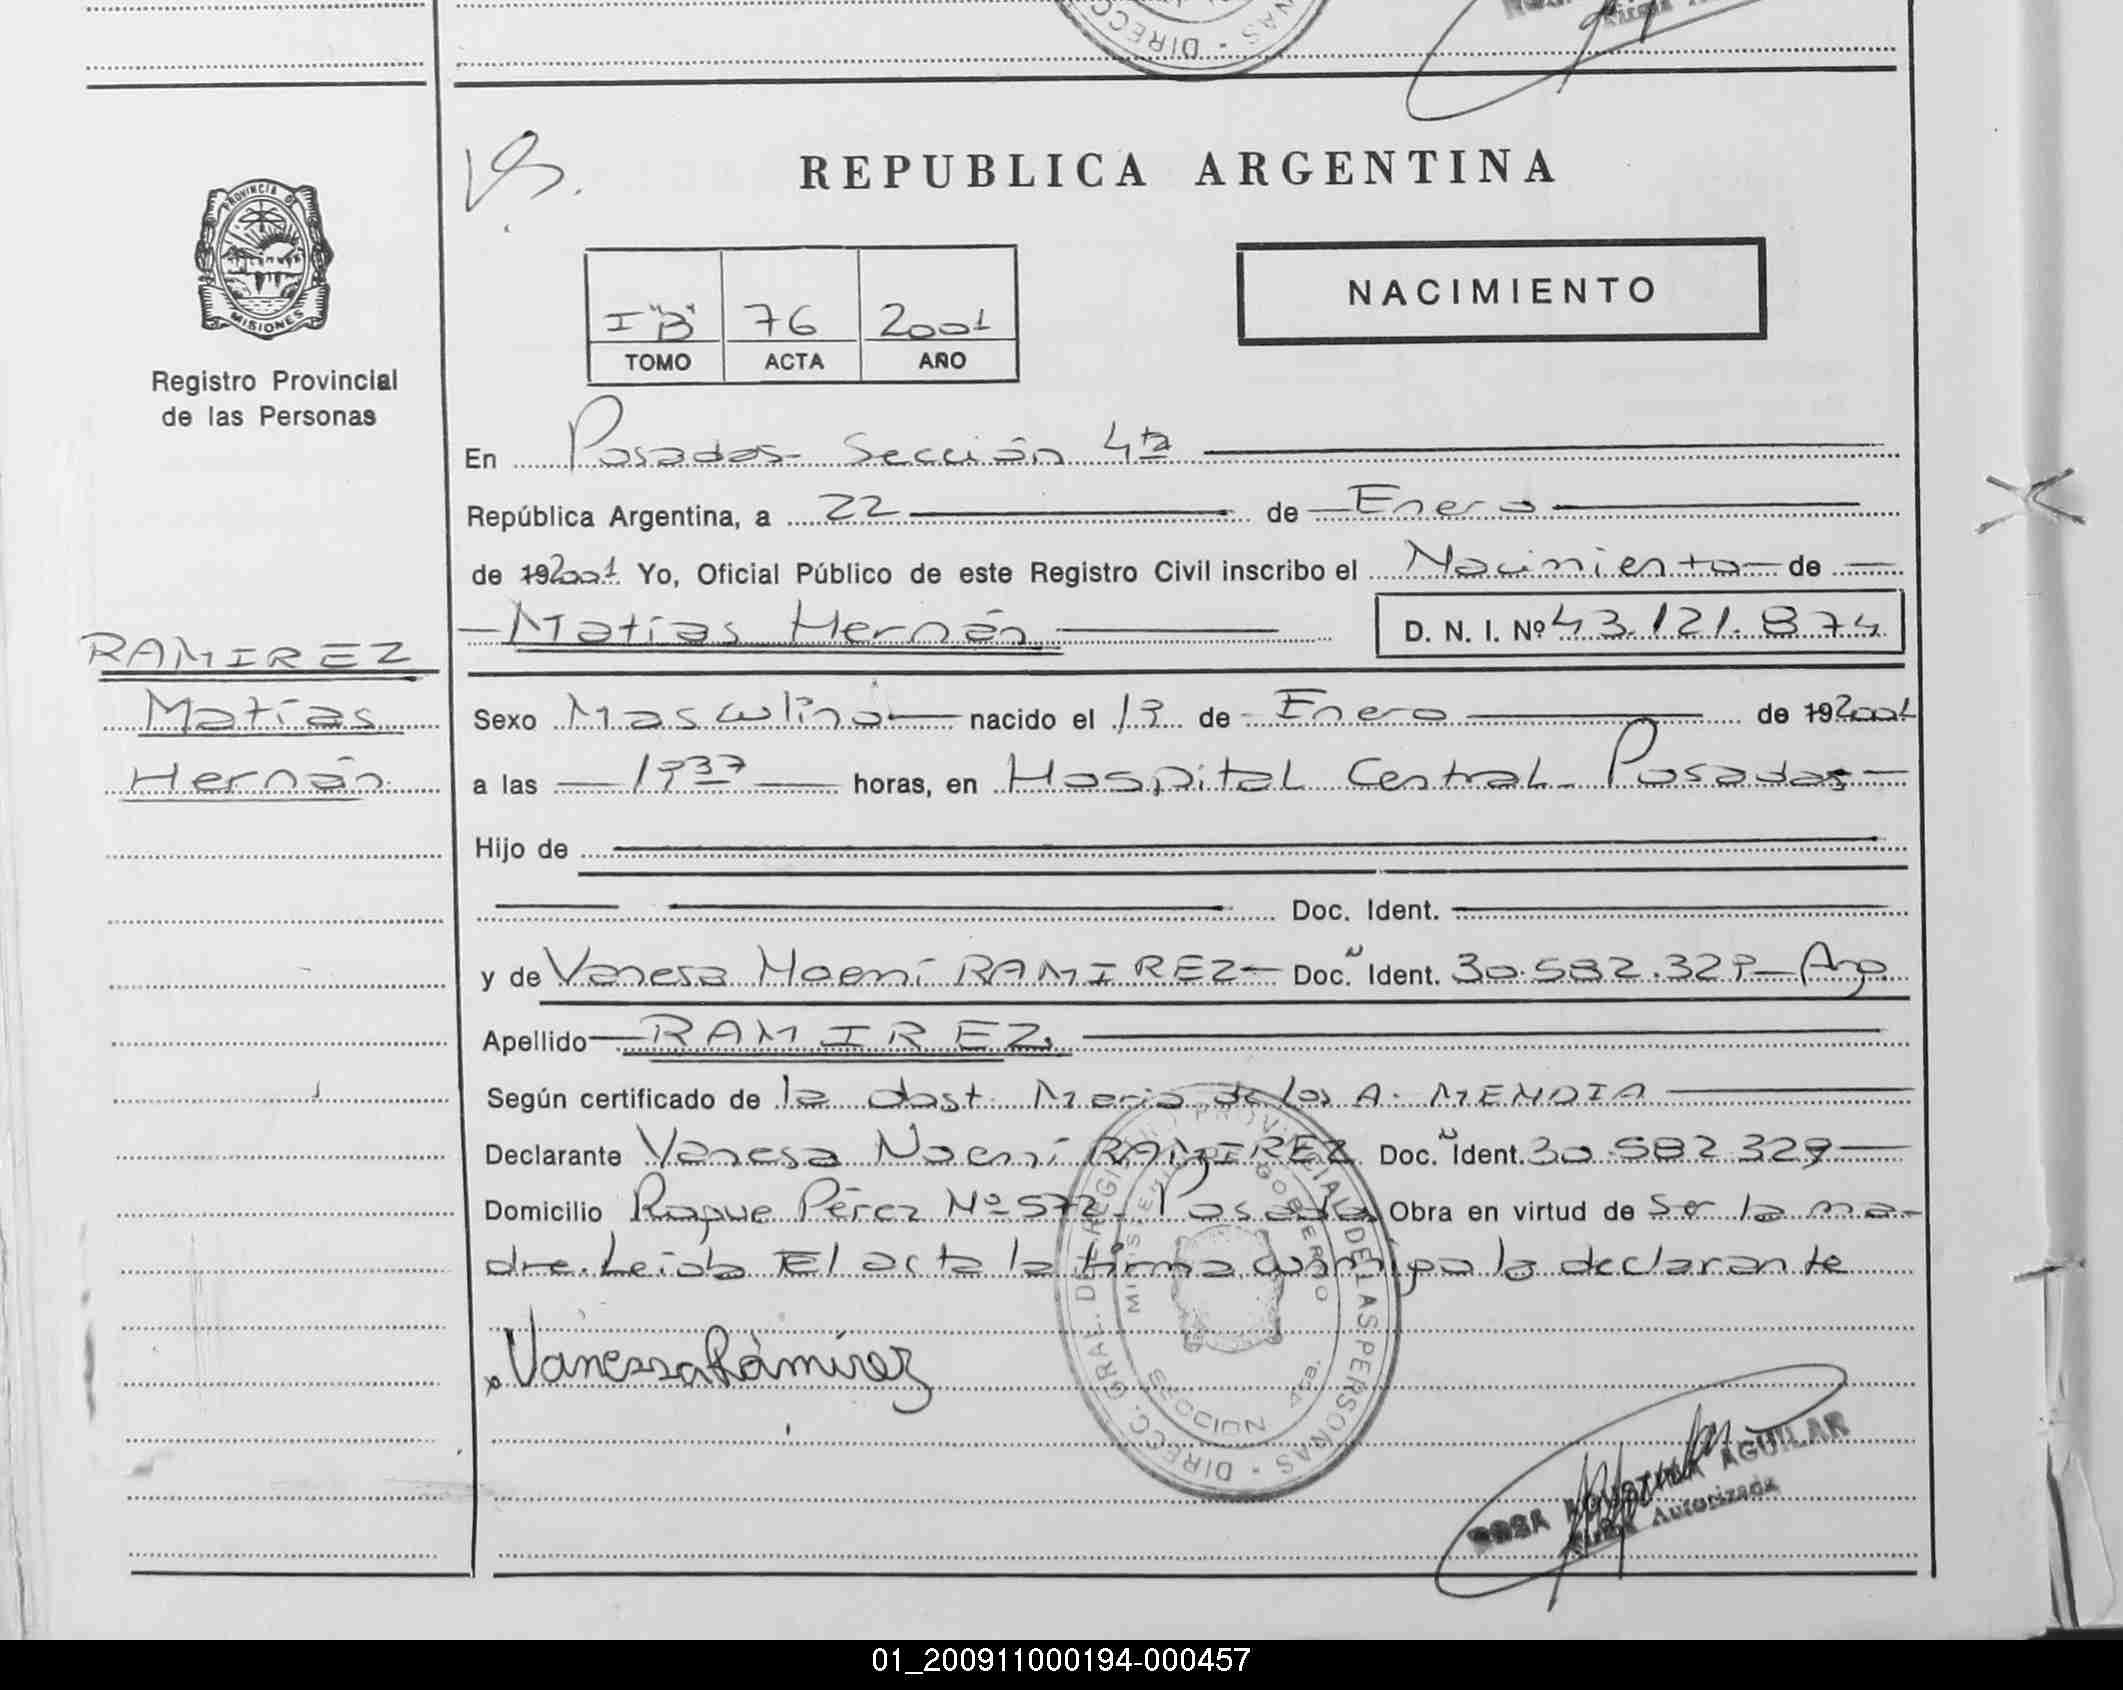 REPUBLICA ARGENTINA
PROVINCIA DE
MISIONES
Registro Provincial
de las Personas
NACIMIENTO
I "B" 76 2001
TOMO ACTA AÑO
En Posadas- Sección 4ta
República Argentina, a 22 de Enero
de 192001 Yo, Oficial Público de este Registro Civil inscribo el Nacimiento de
Matías Hernán D. N. I. Nº 43.121.874
RAMIREZ
Matías
Hernán
Sexo Masculino nacido el 19 de Enero de 192001
a las 1937 horas, en Hospital Central- Posadas
Hijo de
Doc. Ident.
y de Vanesa Noemí RAMIREZ Doc. Ident. 30.582.329 Arg.
Apellido RAMIREZ
Según certificado de la obst. María de los A. MENDIA
Declarante Vanesa Noemí RAMIREZ Doc. Ident. 30.582.329
Domicilio Roque Pérez Nº 572- Posadas Obra en virtud de ser la ma-
dre. Leída El acta la firma conmigo la declarante
Vanessa Ramírez
DIRECC. GRAL. DEL REGISTRO PROVINCIAL DE LAS PERSONAS
MINISTERIO DE GOBIERNO
SECCION 4ta.
ROSA AGUILAR
Firma Autorizada
01_200911000194-000457